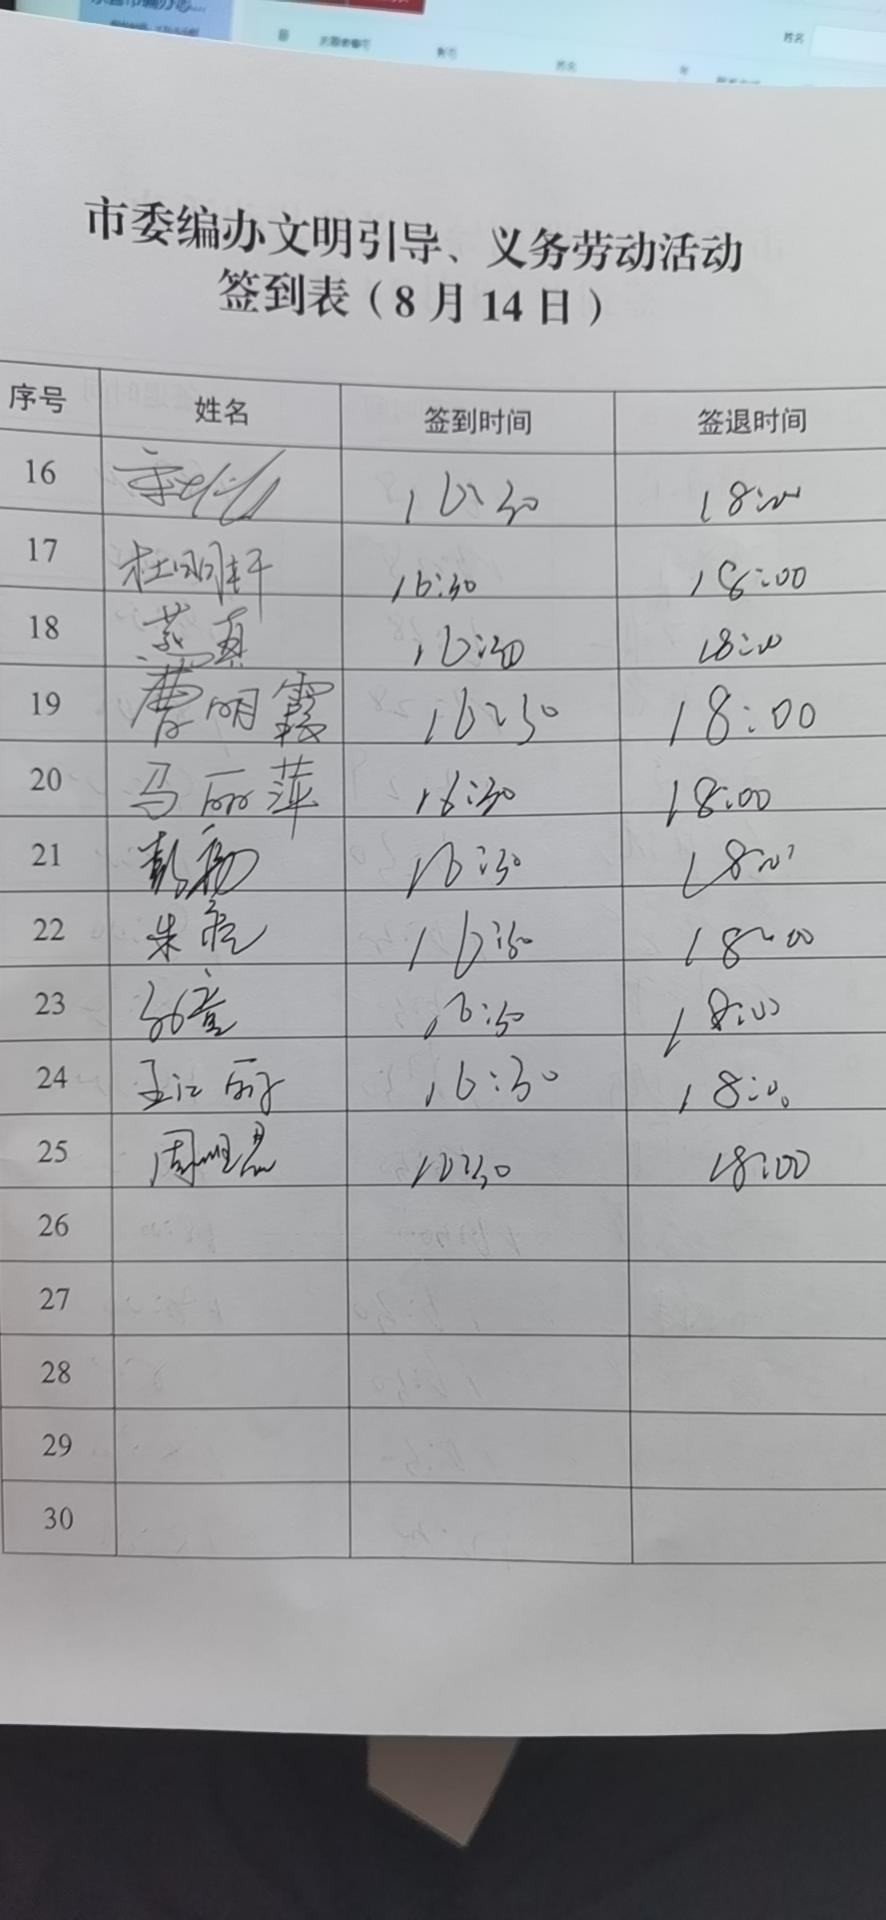 姓名
市委编办文明引导、义务劳动活动
签到表（8月14日）
序号 姓名 签到时间 签退时间
16 16:30 18:00
17 杜明轩 16:30 18:00
18 16:30 18:00
19 曹明霞 16:30 18:00
20 马丽萍 16:30 18:00
21 彭扬 16:30 18:00
22 朱 16:30 18:00
23 16:30 18:00
24 王江丽 16:30 18:00
25 周 16:30 18:00
26
27
28
29
30